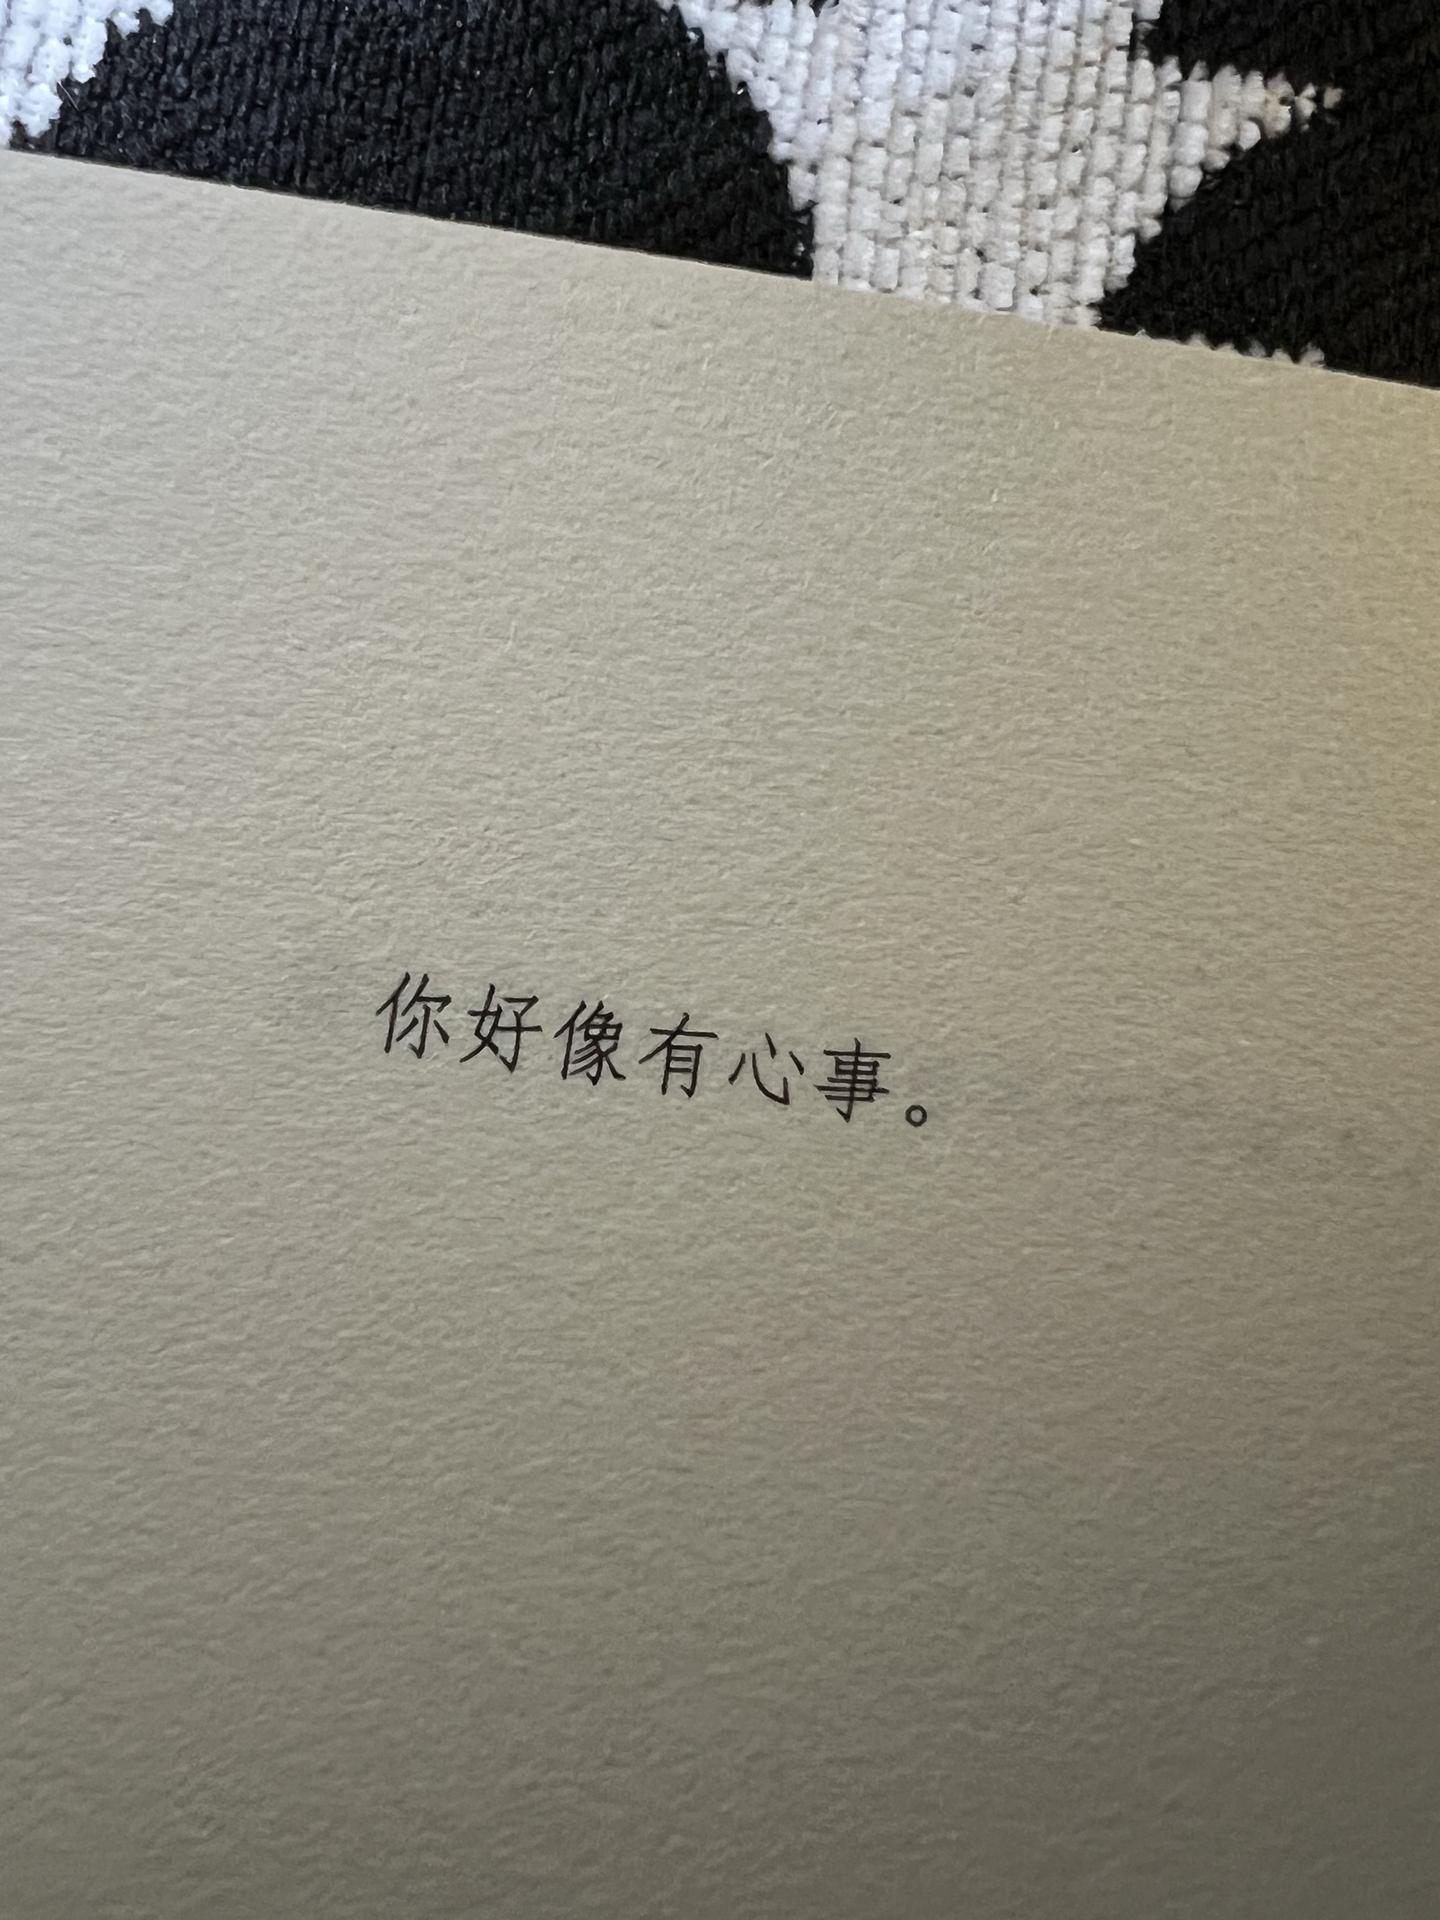 你好像有心事。